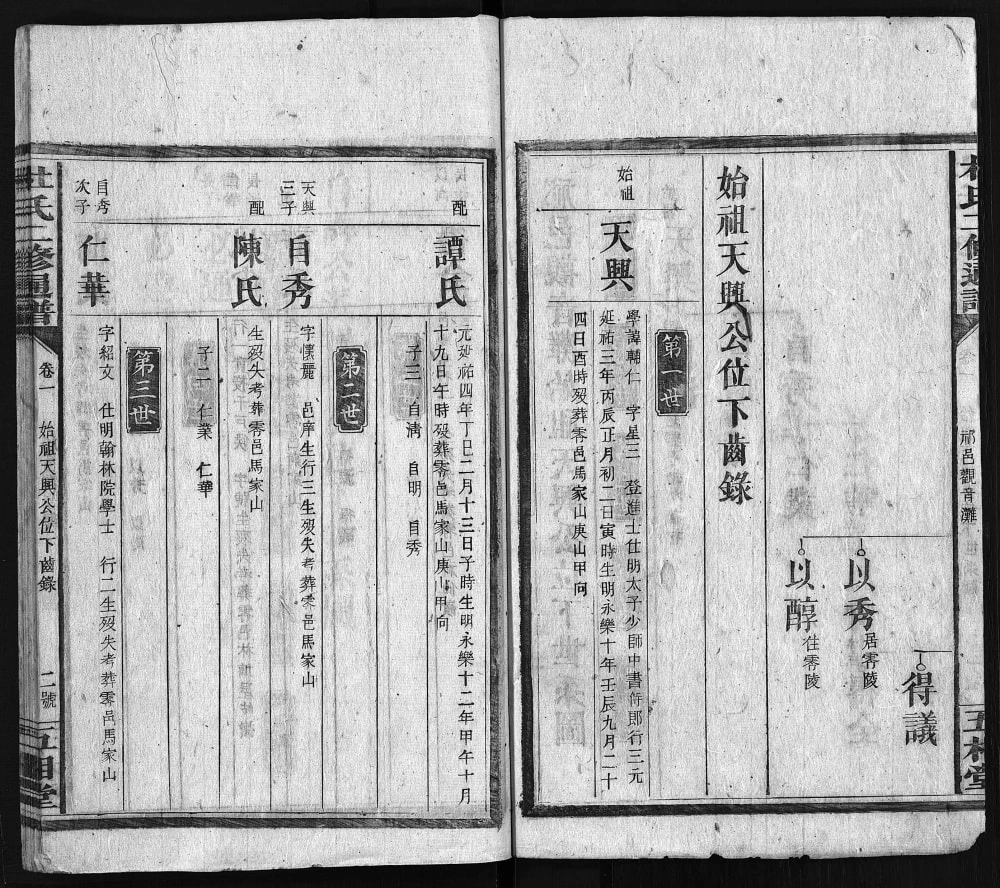 祁邑觀音灘
得議
以秀 居零陵
以醇 住零陵
始祖天興公位下齒錄
第一世
始祖
天興
學諱輔仁 字星三 登進士仕明太子少師中書侍郎行三元
延祐三年丙辰正月初二日寅時生明永樂十年壬辰九月二十
四日酉時歿葬零邑馬家山庚山甲向
配
譚氏
元延祐四年丁巳二月十三日子時生明永樂十二年甲午十月
十九日午時歿葬零邑馬家山庚山甲向
子三 自清 自明 自秀
第二世
天興
三子
自秀
字懐麗 邑庠生行三生歿失考葬零邑馬家山
配
陳氏
生歿失考葬零邑馬家山
子二 仁業 仁華
第三世
自秀
次子
仁華
字紹文 仕明翰林院學士 行二生歿失考葬零邑馬家山
杜氏二修通譜 卷一 始祖天興公位下齒錄 二號 五相堂